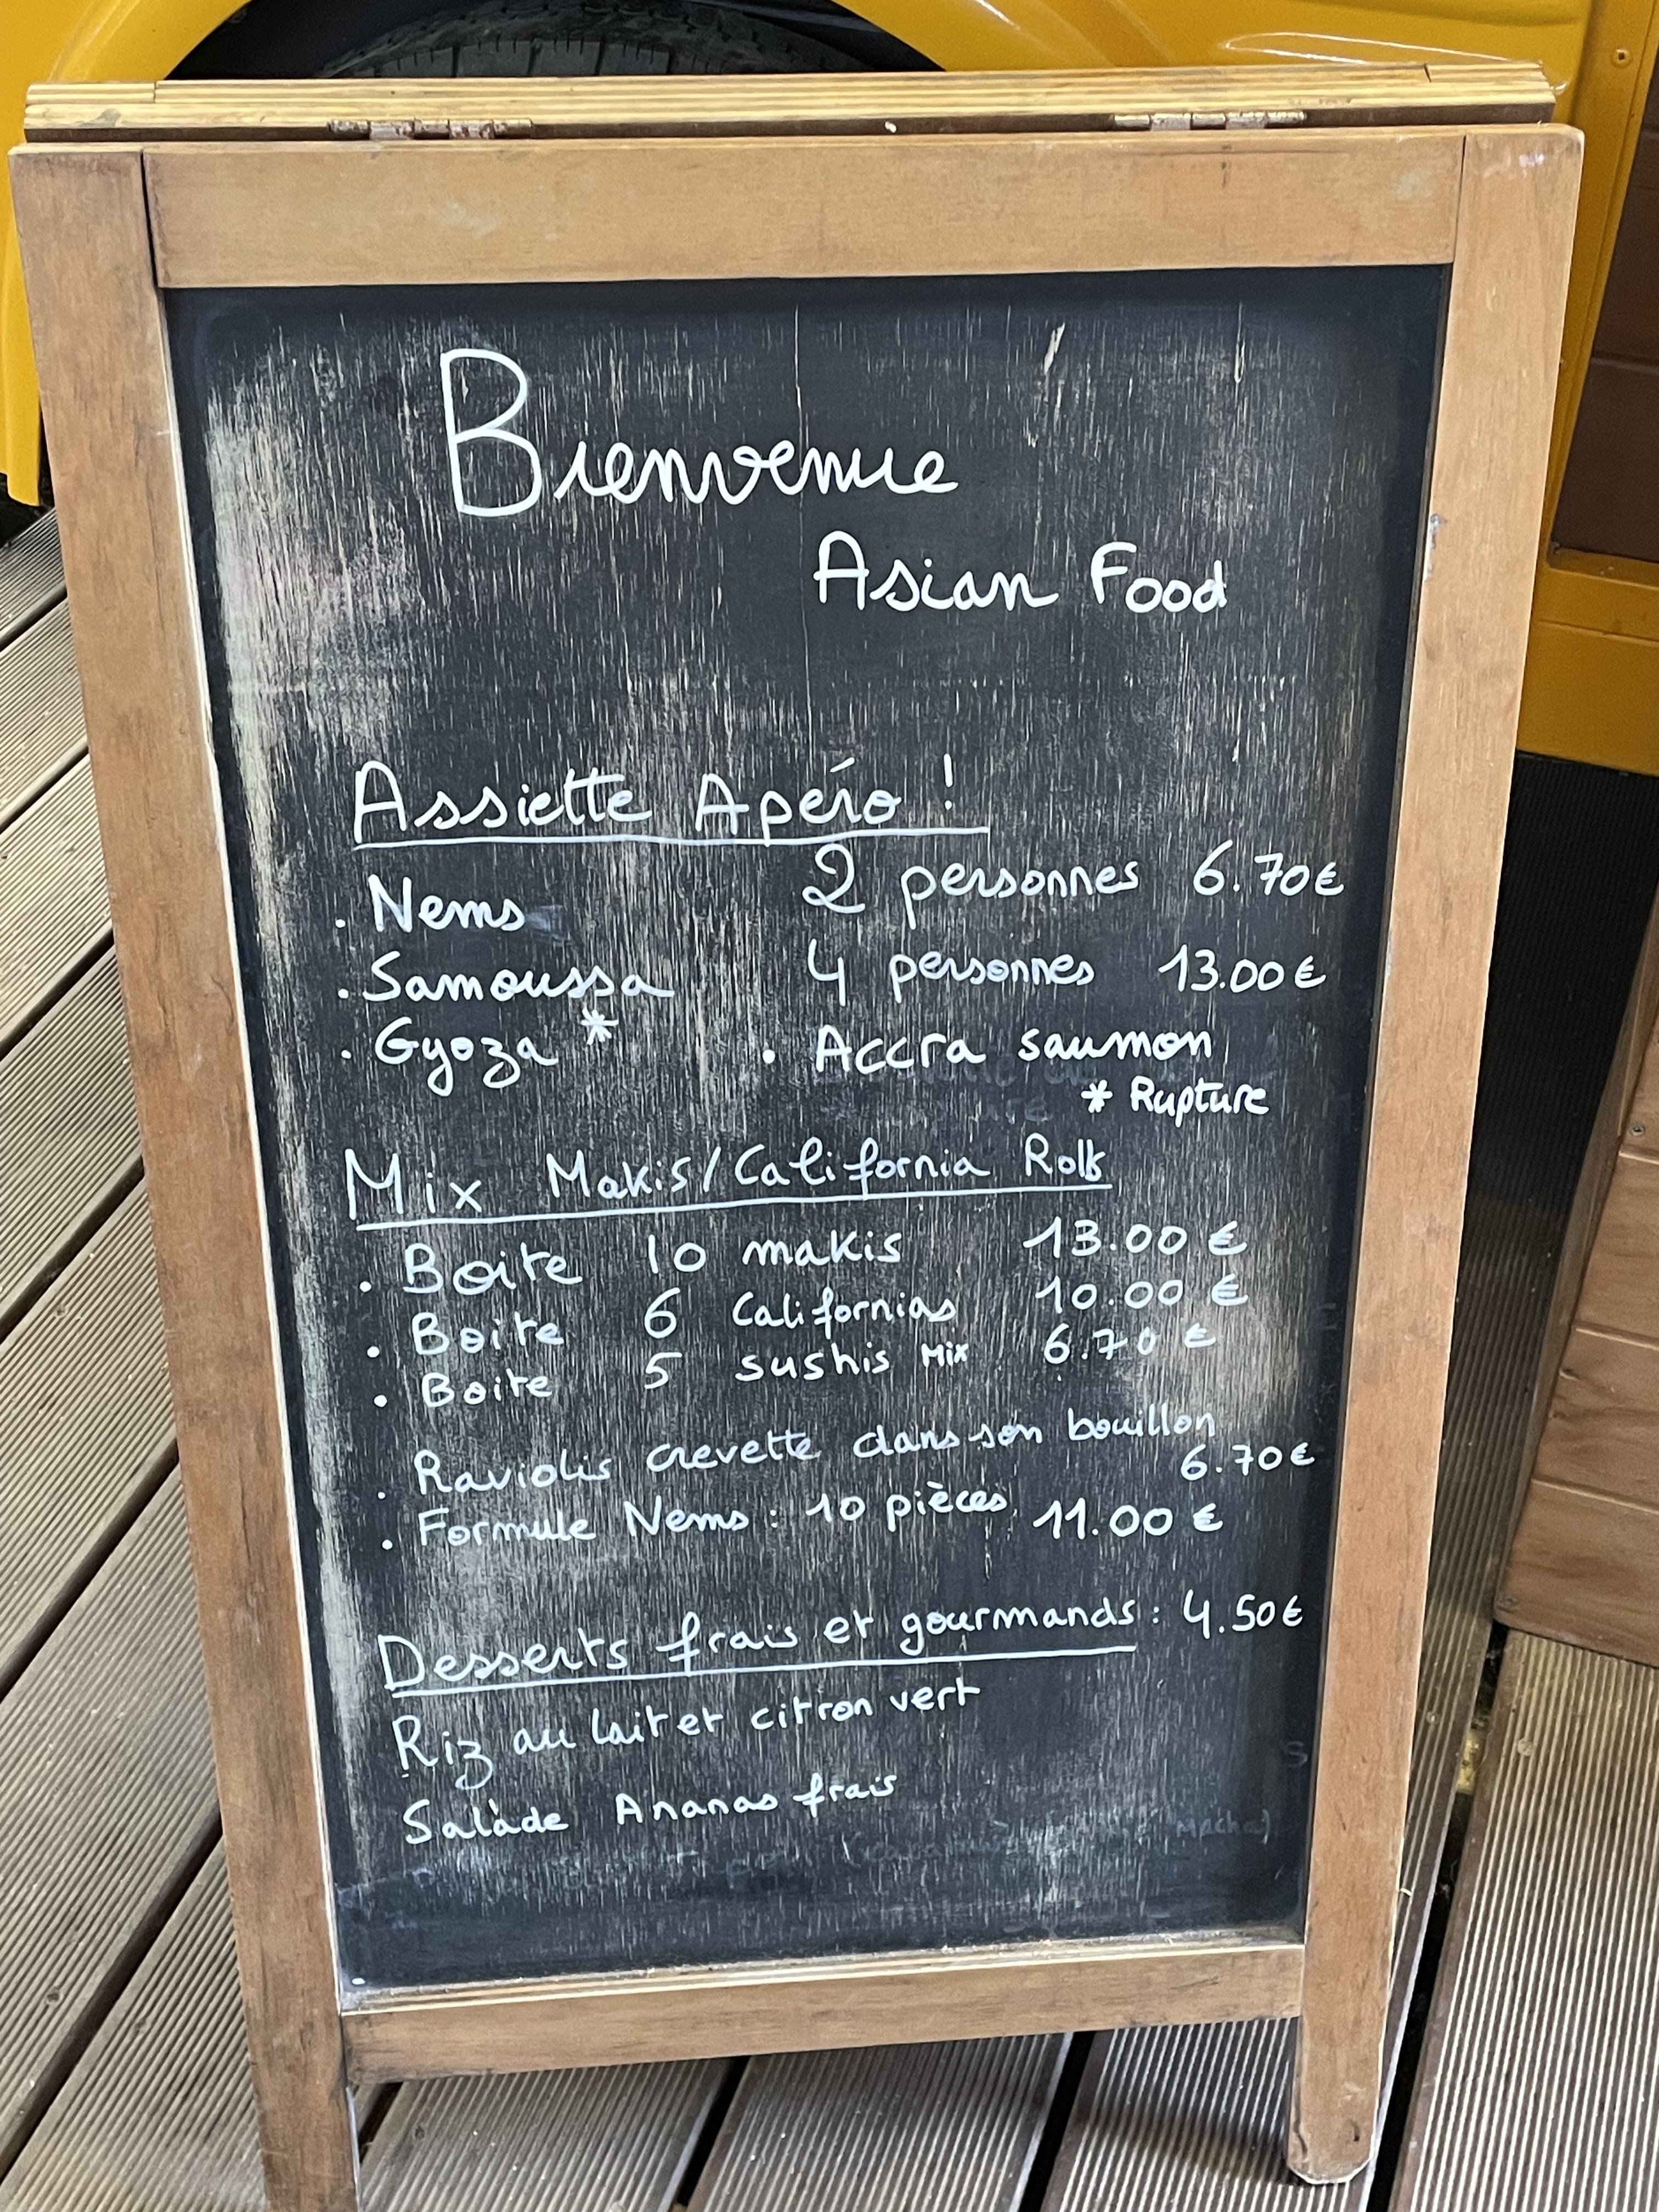 Bienvenue
Asian Food
Assiette Apéro !
. Nems 2 personnes 6.70€
. Samoussa 4 personnes 13.00€
. Gyoza * . Accra saumon
* Rupture
Mix Makis/California Rolls
. Boite 10 makis 13.00 €
. Boite 6 Californias 10.00 €
. Boite 5 sushis Mix 6.70 €
. Raviolis crevette dans son bouillon
6.70€
. Formule Nems : 10 pièces 11.00 €
Desserts frais et gourmands : 4.50€
Riz au lait et citron vert
Salade Ananas frais